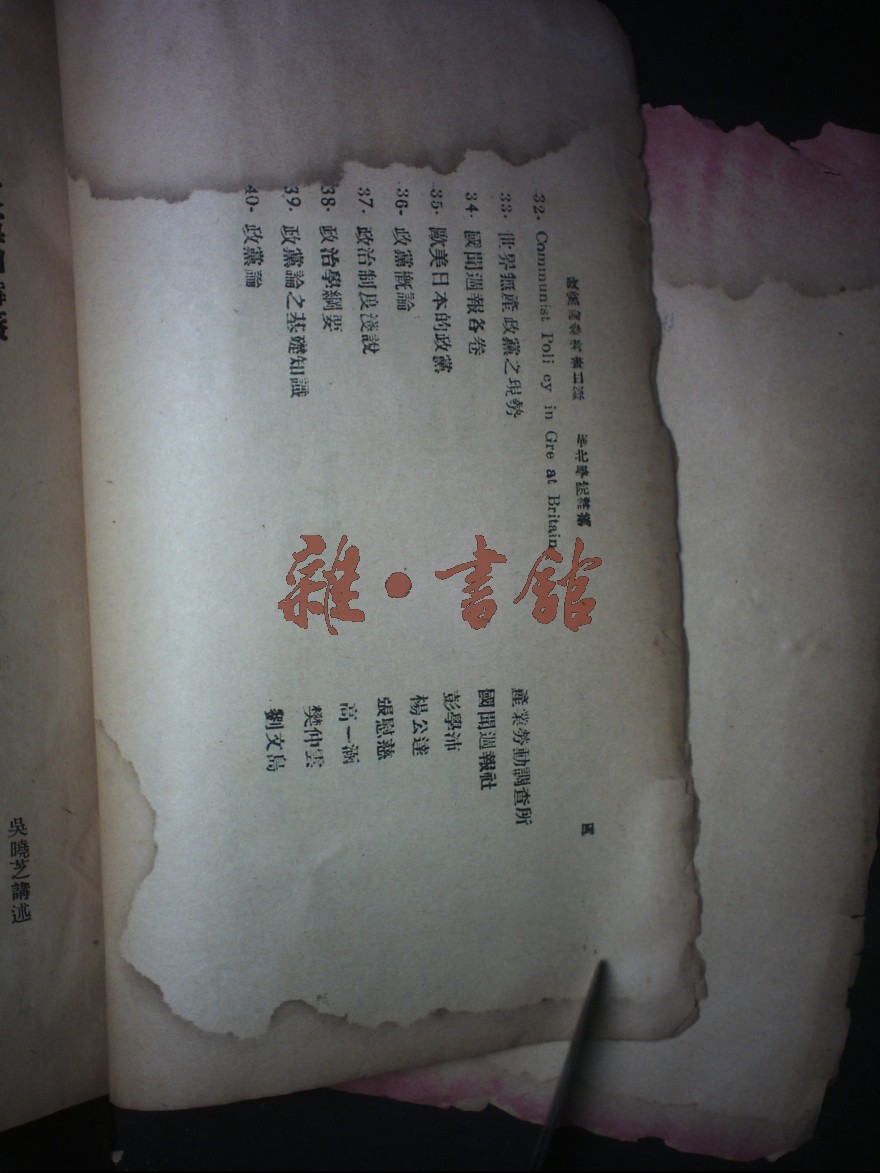 32- Communist Poli cy in Gre at Britain
33· 世界無產政黨之現勢 產業勞動調查所
34· 國聞週報各卷 國聞週報社
35· 歐美日本的政黨 彭學沛
36- 政黨概論 楊公達
37· 政治制度淺說 張慰慈
38· 政治學綱要 高一涵
39· 政黨論之基礎知識 樊仲雲
40- 政黨論 劉文島
雜·書館